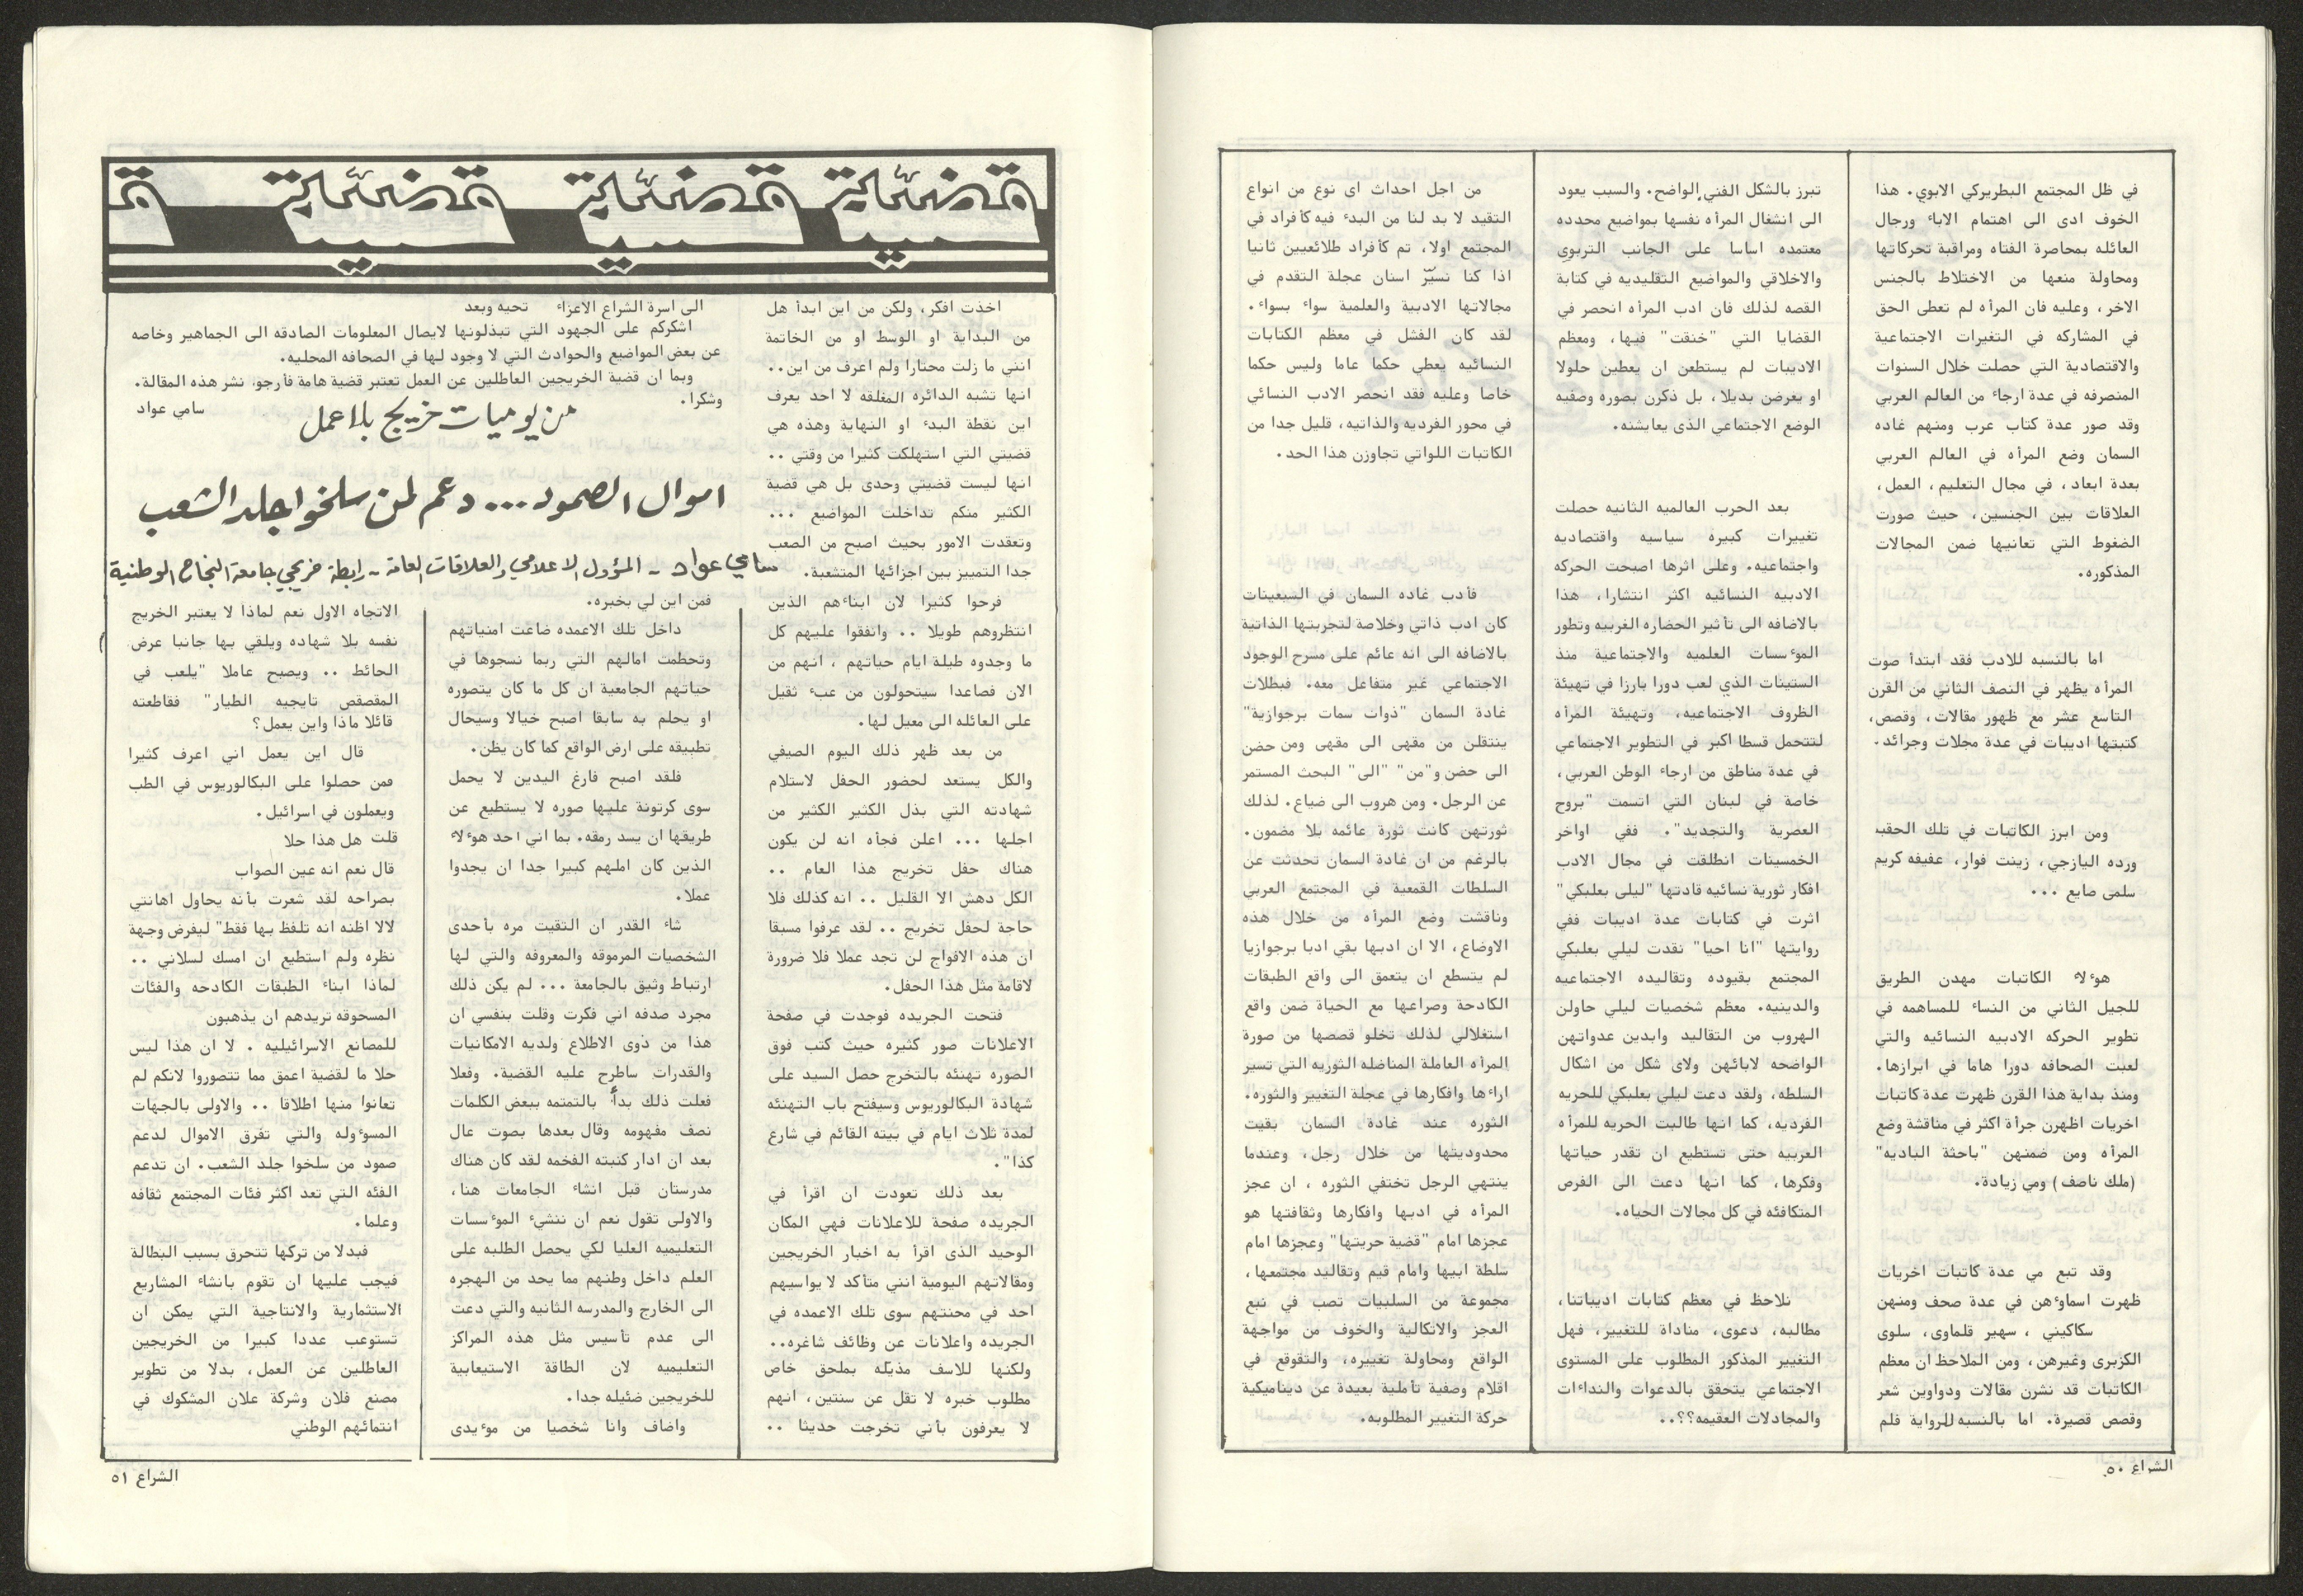 في ظل المجتمع البطريركي الابوي. هذا
الخوف ادى الى اهتمام الاباء ورجال
العائله بمحاصرة الفتاه ومراقبة تحركاتها
ومحاولة منعها من الاختلاط بالجنس
الاخر، وعليه فان المرأه لم تعطى الحق
في المشاركه في التغيرات الاجتماعية
والاقتصادية التي حصلت خلال السنوات
المنصرفه في عدة ارجاء من العالم العربي
وقد صور عدة كتاب عرب ومنهم غاده
السمان وضع المرأه في العالم العربي
بعدة ابعاد، في مجال التعليم، العمل،
العلاقات بين الجنسين، حيث صورت
الضغوط التي تعانيها ضمن المجالات
المذكوره.
اما بالنسبه للادب فقد ابتدأ صوت
المرأه يظهر في النصف الثاني من القرن
التاسع عشر مع ظهور مقالات، وقصص،
كتبتها اديبات في عدة مجلات وجرائد.
ومن ابرز الكاتبات في تلك الحقبه
ورده اليازجي، زينت فوار، عفيفه كريم
سلمى صايع ...
هوءلاء الكاتبات مهدن الطريق
للجيل الثاني من النساء للمساهمه في
تطوير الحركه الادبيه النسائيه والتي
لعبت الصحافه دورا هاما في ابرازها.
ومنذ بداية هذا القرن ظهرت عدة كاتبات
اخريات اظهرن جرأة اكثر في مناقشة وضع
المرأه ومن ضمنهن "باحثة الباديه"
(ملك ناصف) ومي زيادة.
وقد تبع مي عدة كاتبات اخريات
ظهرت اسماوءهن في عدة صحف ومنهن
سكاكيني ، سهير قلماوى، سلوى
الكزبرى وغيرهن، ومن الملاحظ ان معظم
الكاتبات قد نشرن مقالات ودواوين شعر
وقصص قصيرة. اما بالنسبه للرواية فلم
تبرز بالشكل الفني الواضح. والسبب يعود
الى انشغال المرأه نفسها بمواضيع محدده
معتمده اساسا على الجانب التربوي
والاخلاقي والمواضيع التقليديه في كتابة
القصه لذلك فان ادب المرأه انحصر في
القضايا التي "خنقت" فيها، ومعظم
الاديبات لم يستطعن ان يعطين حلولا
او يعرضن بديلا، بل ذكرن بصوره وصفيه
الوضع الاجتماعي الذى يعايشنه.
بعد الحرب العالميه الثانيه حصلت
تغييرات كبيره سياسيه واقتصاديه
واجتماعيه. وعلى اثرها اصبحت الحركه
الادبيه النسائيه اكثر انتشارا، هذا
بالاضافه الى تأثير الحضاره الغربيه وتطور
الموءسسات العلميه والاجتماعية منذ
الستينات الذي لعب دورا بارزا في تهيئة
الظروف الاجتماعيه، وتهيئة المرأه
لتتحمل قسطا اكبر في التطوير الاجتماعي
في عدة مناطق من ارجاء الوطن العربي،
خاصة في لبنان التي اتسمت "بروح
العصرية والتجديد". ففي اواخر
الخمسينات انطلقت في مجال الادب
افكار ثورية نسائيه قادتها "ليلى بعلبكي"
اثرت في كتابات عدة اديبات ففي
روايتها "انا احيا" نقدت ليلي بعلبكي
المجتمع بقيوده وتقاليده الاجتماعيه
والدينيه. معظم شخصيات ليلي حاولن
الهروب من التقاليد وابدين عدواتهن
الواضحه لابائهن ولاى شكل من اشكال
السلطه، ولقد دعت ليلي بعلبكي للحريه
الفرديه، كما انها طالبت الحريه للمرأه
العربيه حتى تستطيع ان تقدر حياتها
وفكرها، كما انها دعت الى الفرص
المتكافئه في كل مجالات الحياه.
نلاحظ في معظم كتابات اديباتنا،
مطالبه، دعوى، مناداة للتغيير، فهل
التغيير المذكور المطلوب على المستوى
الاجتماعي يتحقق بالدعوات والنداءات
والمجادلات العقيمه؟؟..
من اجل احداث اى نوع من انواع
التقيد لا بد لنا من البدء فيه كأفراد في
المجتمع اولا، تم كأفراد طلائعيين ثانيا
اذا كنا نسيّر اسنان عجلة التقدم في
مجالاتها الادبية والعلمية سواء بسواء.
لقد كان الفشل في معظم الكتابات
النسائيه يعطي حكما عاما وليس حكما
خاصا وعليه فقد انحصر الادب النسائي
في محور الفرديه والذاتيه، قليل جدا من
الكاتبات اللواتي تجاوزن هذا الحد.
فأدب غاده السمان في السبعينات
كان ادب ذاتي وخلاصة لتجربتها الذاتية
بالاضافه الى انه عائم على مسرح الوجود
الاجتماعي غير متفاعل معه. فبطلات
غادة السمان "ذوات سمات برجوازية"
ينتقلن من مقهى الى مقهى ومن حضن
الى حضن و"من" "الى" البحث المستمر
عن الرجل. ومن هروب الى ضياع. لذلك
ثورتهن كانت ثورة عائمه بلا مضمون.
بالرغم من ان غادة السمان تحدثت عن
السلطات القمعية في المجتمع العربي
وناقشت وضع المرأه من خلال هذه
الاوضاع، الا ان ادبها بقي ادبا برجوازيا
لم يتسطع ان يتعمق الى واقع الطبقات
الكادحة وصراعها مع الحياة ضمن واقع
استغلالي لذلك تخلو قصصها من صورة
المرأه العاملة المناضله الثوريه التي تسير
اراءها وافكارها في عجلة التغيير والثوره.
الثوره عند غادة السمان بقيت
محدوديتها من خلال رجل، وعندما
ينتهي الرجل تختفي الثوره ، ان عجز
المرأه في ادبها وافكارها وثقافتها هو
عجزها امام "قضية حريتها" وعجزها امام
سلطة ابيها وامام قيم وتقاليد مجتمعها،
مجموعة من السلبيات تصب في نبع
العجز والاتكالية والخوف من مواجهة
الواقع ومحاولة تغييره، والتقوقع في
اقلام وصفية تأملية بعيدة عن ديناميكية
حركة التغيير المطلوبه.
الشراع ٥٠
قضية قضية قضية ق
الى اسرة الشراع الاعزاء تحيه وبعد
اشكركم على الجهود التي تبذلونها لايصال المعلومات الصادقه الى الجماهير وخاصه
عن بعض المواضيع والحوادث التي لا وجود لها في الصحافه المحليه.
وبما ان قضية الخريجين العاطلين عن العمل تعتبر قضية هامة فأرجو، نشر هذه المقالة.
وشكرا.
سامي عواد
من يوميات خريج بلا عمل
اموال الصمود... دعم لمن سلخوا جلد الشعب
سامي عواد - المسؤول الاعلامي والعلاقات العامة - رابطة خريجي جامعة النجاح الوطنية
اخذت افكر، ولكن من اين ابدأ هل
من البداية او الوسط او من الخاتمة
انني ما زلت محتارا ولم اعرف من اين..
انها تشبه الدائره المغلقه لا احد يعرف
اين نقطة البدء او النهاية وهذه هي
قضيتي التي استهلكت كثيرا من وقتي ..
انها ليست قضيتي وحدى بل هي قضية
الكثير منكم تداخلت المواضيع ...
وتعقدت الامور بحيث اصبح من الصعب
جدا التمييز بين اجزائها المتشعبة.
فرحوا كثيرا لان ابناءهم الذين
انتظروهم طويلا .. وانفقوا عليهم كل
ما وجدوه طيلة ايام حياتهم ، انهم من
الان فصاعدا سيتحولون من عبء ثقيل
على العائله الى معيل لها.
من بعد ظهر ذلك اليوم الصيفي
والكل يستعد لحضور الحفل لاستلام
شهادته التي بذل الكثير الكثير من
اجلها ... اعلن فجأه انه لن يكون
هناك حفل تخريج هذا العام ..
الكل دهش الا القليل .. انه كذلك فلا
حاجة لحفل تخريج .. لقد عرفوا مسبقا
ان هذه الافواج لن تجد عملا فلا ضرورة
لاقامة مثل هذا الحفل.
فتحت الجريده فوجدت في صفحة
الاعلانات صور كثيره حيث كتب فوق
الصوره تهنئه بالتخرج حصل السيد على
شهادة البكالوريوس وسيفتح باب التهنئه
لمدة ثلاث ايام في بيته القائم في شارع
كذا".
بعد ذلك تعودت ان اقرأ في
الجريده صفحة للاعلانات فهي المكان
الوحيد الذى اقرأ به اخبار الخريجين
ومقالاتهم اليومية انني متأكد لا يواسيهم
احد في محنتهم سوى تلك الاعمده في
الجريده واعلانات عن وظائف شاغره..
ولكنها للاسف مذيله بملحق خاص
مطلوب خبره لا تقل عن سنتين، انهم
لا يعرفون بأني تخرجت حديثا ..
فمن اين لي بخبره.
داخل تلك الاعمده ضاعت امنياتهم
وتحطمت امالهم التي ربما نسجوها في
حياتهم الجامعية ان كل ما كان يتصوره
او يحلم به سابقا اصبح خيالا وسيحال
تطبيقه على ارض الواقع كما كان يظن.
فلقد اصبح فارغ اليدين لا يحمل
سوى كرتونة عليها صوره لا يستطيع عن
طريقها ان يسد رمقه. بما اني احد هوءلاء
الذين كان املهم كبيرا جدا ان يجدوا
عملا.
شاء القدر ان التقيت مره بأحدى
الشخصيات المرموقه والمعروفه والتي لها
ارتباط وثيق بالجامعة ... لم يكن ذلك
مجرد صدفه اني فكرت وقلت بنفسي ان
هذا من ذوى الاطلاع ولديه الامكانيات
والقدرات ساطرح عليه القضية. وفعلا
فعلت ذلك بدأ بالتمتمه ببعض الكلمات
نصف مفهومه وقال بعدها بصوت عال
بعد ان ادار كنبته الفخمه لقد كان هناك
مدرستان قبل انشاء الجامعات هنا،
والاولى تقول نعم ان ننشيء الموءسسات
التعليميه العليا لكي يحصل الطلبه على
العلم داخل وطنهم مما يحد من الهجره
الى الخارج والمدرسه الثانيه والتي دعت
الى عدم تأسيس مثل هذه المراكز
التعليميه لان الطاقة الاستيعابية
للخريجين ضئيله جدا.
واضاف وانا شخصيا من موءيدى
الاتجاه الاول نعم لماذا لا يعتبر الخريج
نفسه بلا شهاده ويلقي بها جانبا عرض
الحائط .. ويصبح عاملا "يلعب في
المقصقص تايجيه الطيار" فقاطعته
قائلا ماذا واين يعمل؟
قال اين يعمل اني اعرف كثيرا
فمن حصلوا على البكالوريوس في الطب
ويعملون في اسرائيل.
قلت هل هذا حلا
قال نعم انه عين الصواب
بصراحه لقد شعرت بأنه يحاول اهانتي
لالا اظنه انه تلفظ بها فقط" ليفرض وجهة
نظره ولم استطيع ان امسك لساني ..
لماذا ابناء الطبقات الكادحه والفئات
المسحوقه تريدهم ان يذهبون
للمصانع الاسرائيليه . لا ان هذا ليس
حلا ما لقضية اعمق مما تتصوروا لانكم لم
تعانوا منها اطلاقا .. والاولى بالجهات
المسوءوله والتي تفرق الاموال لدعم
صمود من سلخوا جلد الشعب. ان تدعم
الفئه التي تعد اكثر فئات المجتمع ثقافه
وعلما.
فبدلا من تركها تتحرق بسبب البطالة
فيجب عليها ان تقوم بانشاء المشاريع
الاستثمارية والانتاجية التي يمكن ان
تستوعب عددا كبيرا من الخريجين
العاطلين عن العمل، بدلا من تطوير
مصنع فلان وشركة علان المشكوك في
انتمائهم الوطني
الشراع ٥١